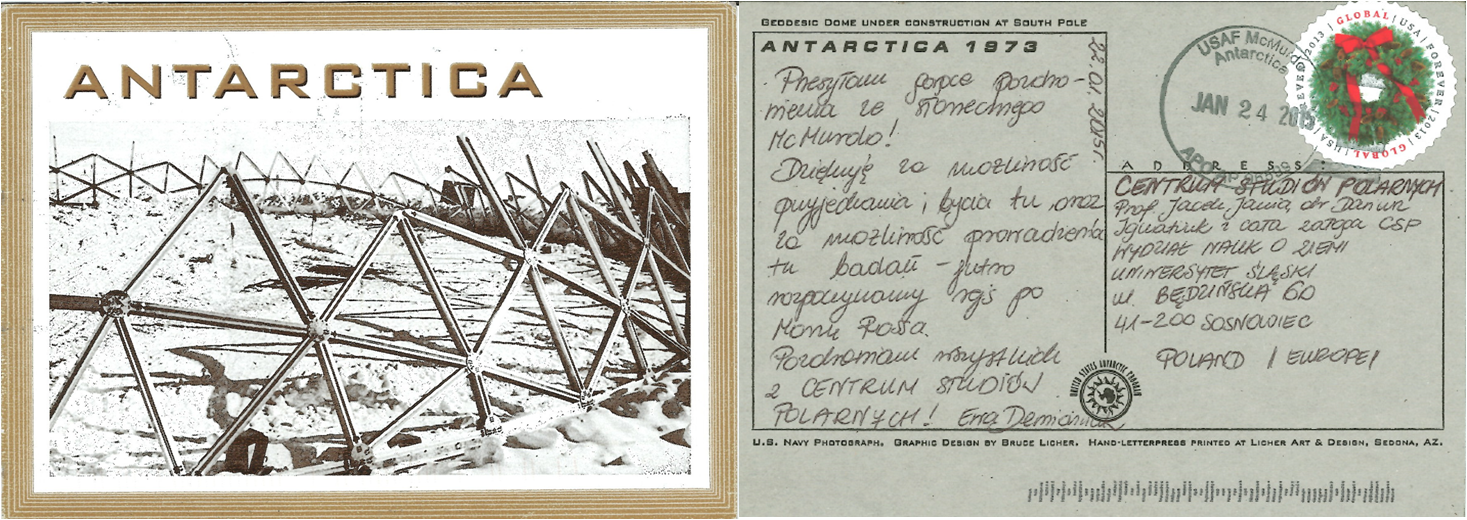 ANTARCTICA
GEODESIC DOME UNDER CONSTRUCTION AT SOUTH POLE
ANTARCTICA 1973
22.01.2015r.
Przesyłam gorące pozdro-
wienia ze słonecznego
McMurdo!
Dziękuję za możliwość
przyjechania i bycia tu oraz
za możliwość prowadzenia
tu badań - jutro
rozpoczynamy rejs po
Morzu Rossa.
Pozdrawiam wszystkich
z CENTRUM STUDIÓW
POLARNYCH! Ewa Demianiuk
USAF McMurdo
Antarctica
JAN 24 2015
APO
GLOBAL | USA | FOREVER | 2013 | GLOBAL | USA | FOREVER | 2013
ADDRESS:
CENTRUM STUDIÓW POLARNYCH
Prof. Jacek Jania, dr Dariusz
Ignatiuk i cała załoga CSP
WYDZIAŁ NAUK O ZIEMI
UNIWERSYTET ŚLĄSKI
ul. BĘDZIŃSKA 60
41-200 SOSNOWIEC
POLAND / EUROPE /
UNITED STATES ANTARCTIC PROGRAM
U.S. NAVY PHOTOGRAPH. GRAPHIC DESIGN BY BRUCE LICHER. HAND-LETTERPRESS PRINTED AT LICHER ART & DESIGN, SEDONA, AZ.